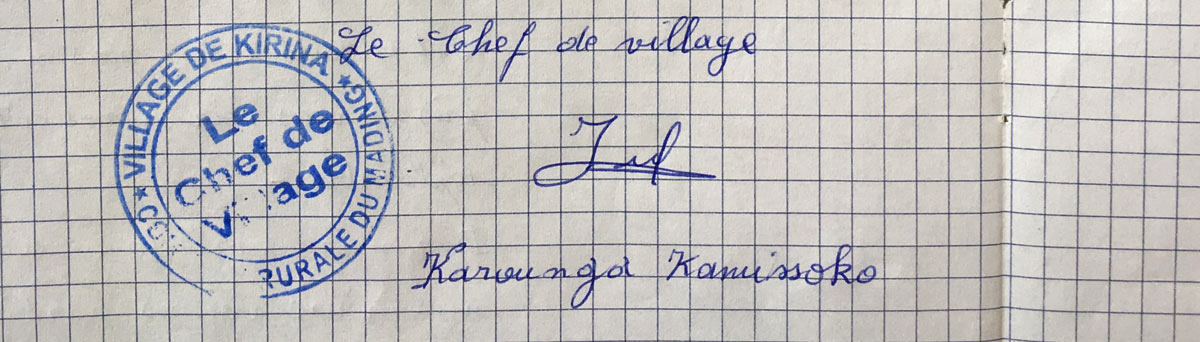 Le Chef de village
★ VILLAGE DE KIRINA ★
RURALE DU MADING
Le
Chef de
Village
Karounga Kamissoko